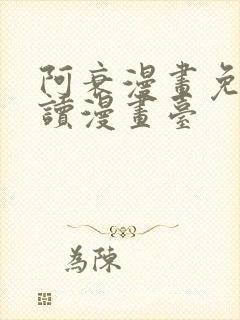 阿衰漫畫免
讀漫畫臺
為陳